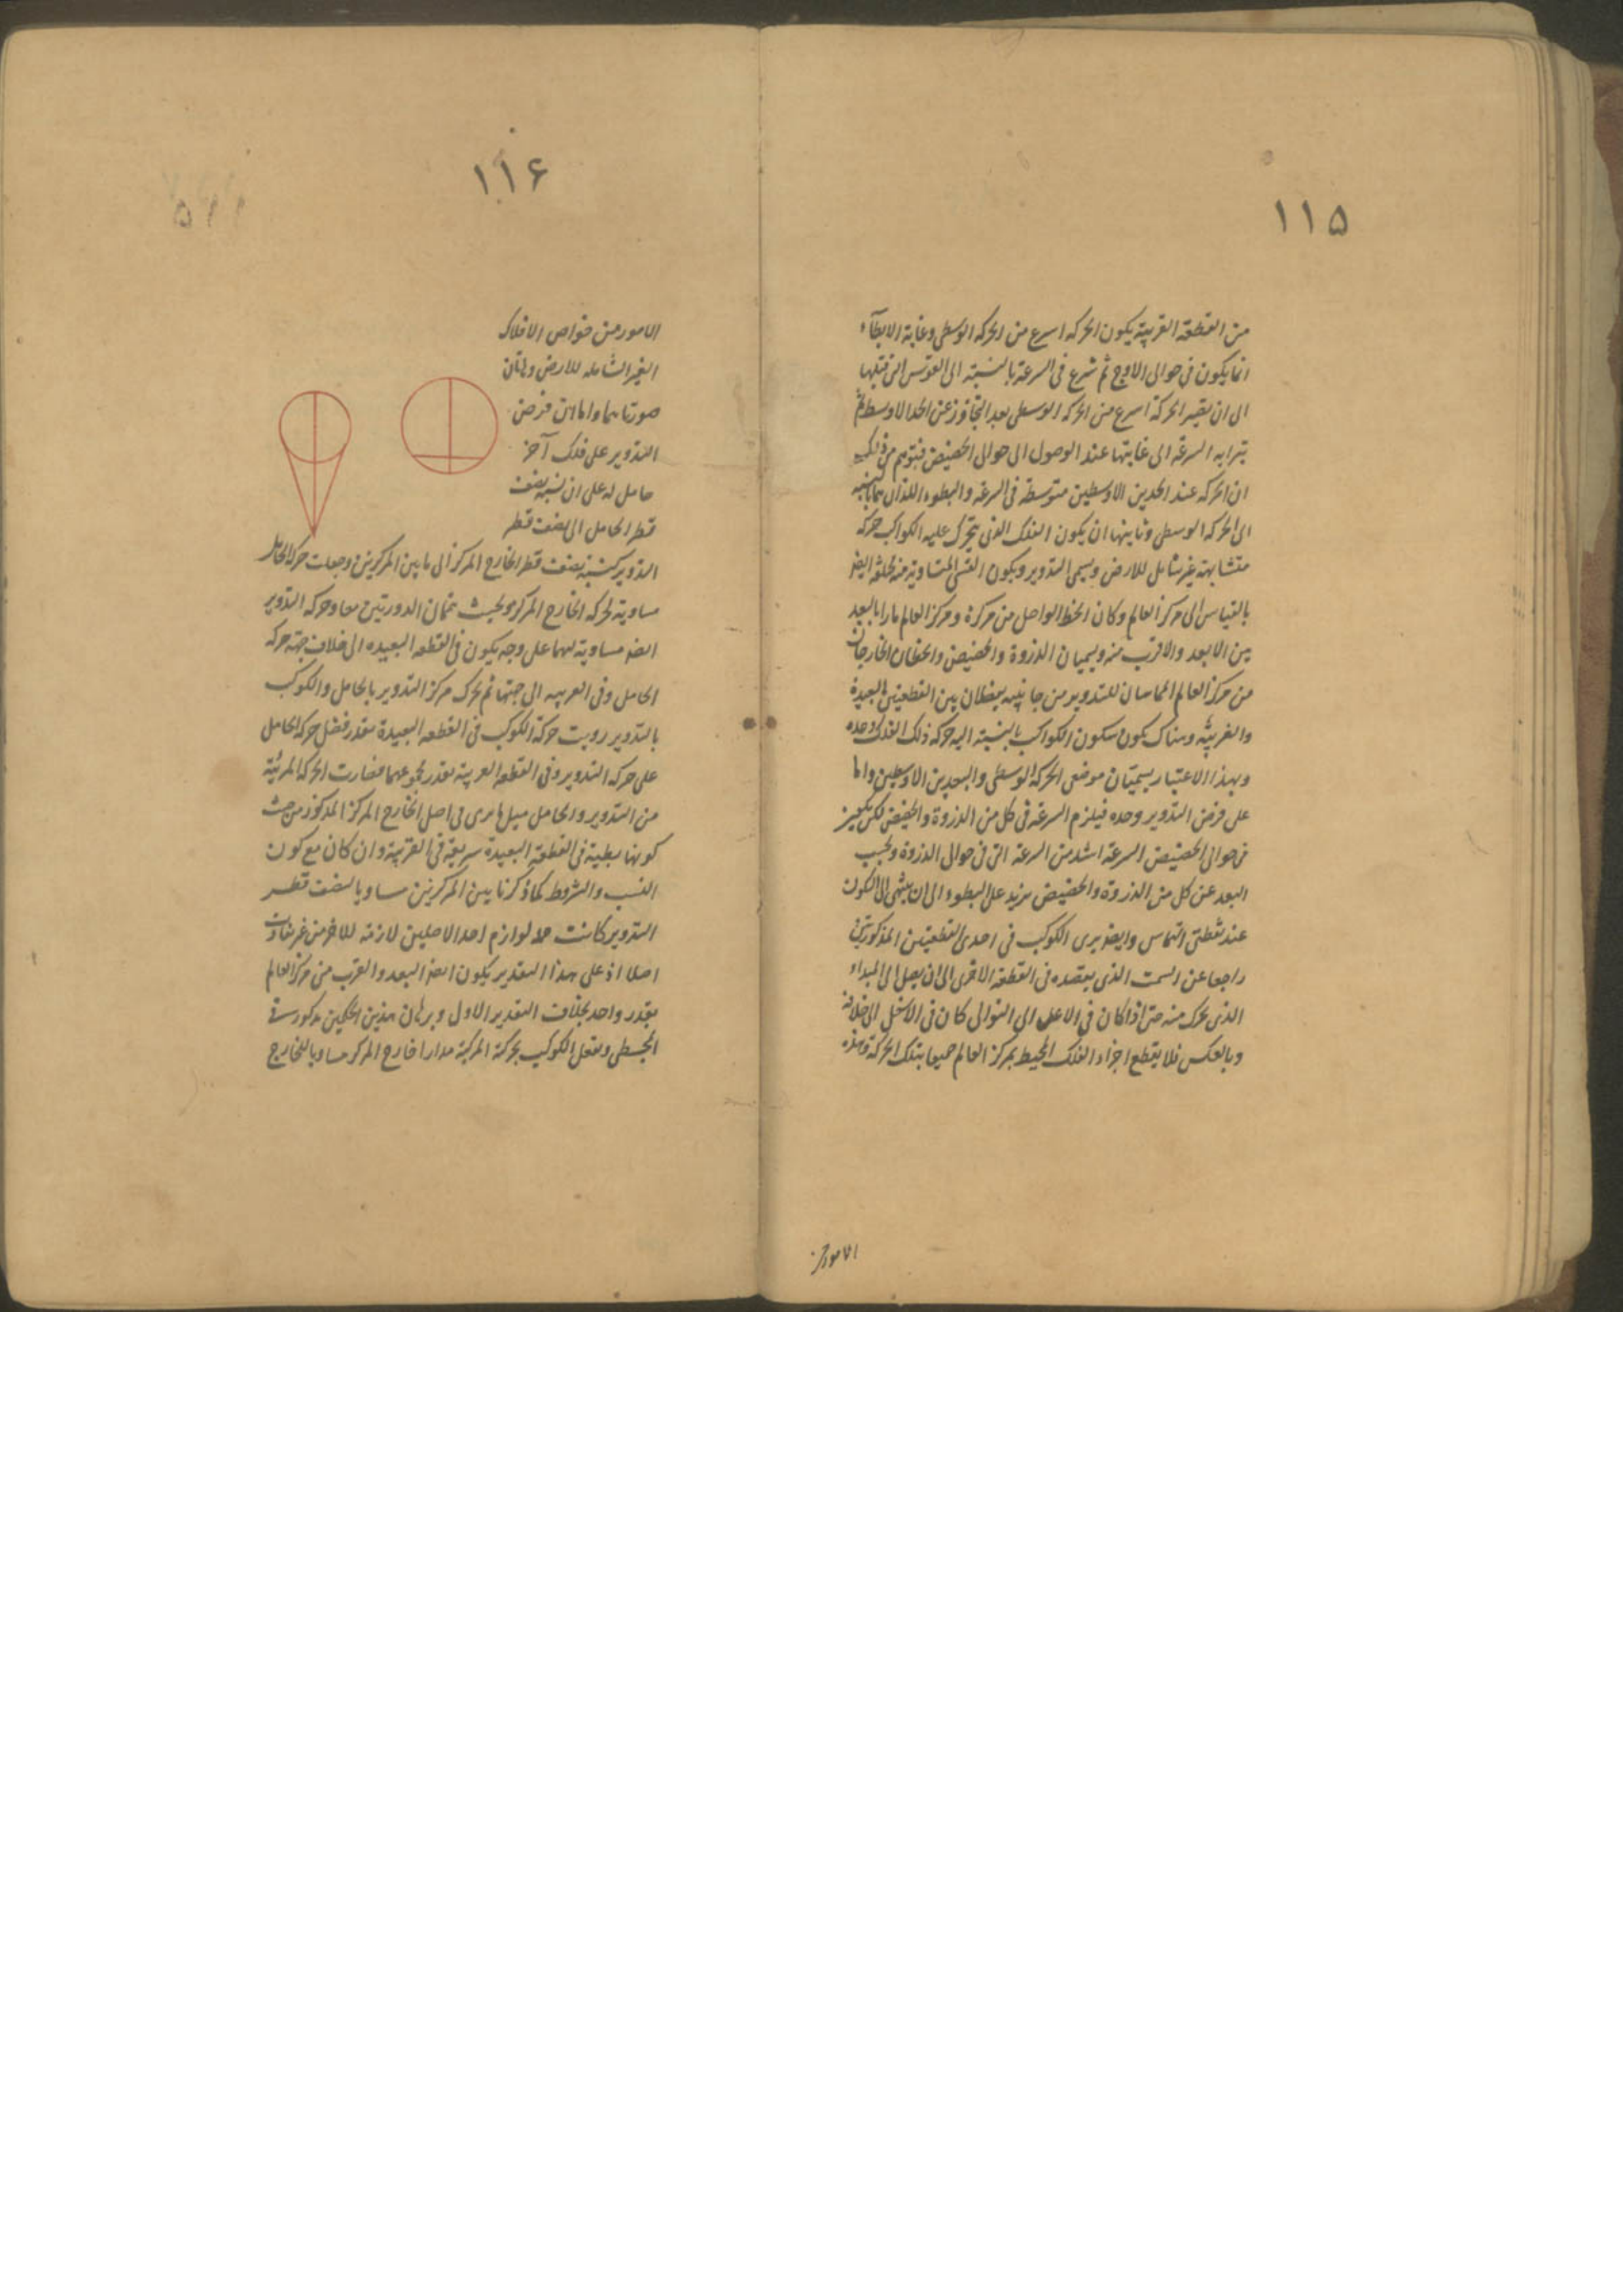 ١١٥
من القطعة القريبة يكون الحركة اسرع من الحركة الوسطى وغاية الابطآء
انما يكون فى حوالى الاوج ثم شرع فى السرعة بالنسبة الى القوس التى قبلها
الى ان يصير الحركة اسرع من الحركة الوسطى بعد التجاوز عن الحد الاوسط ثم
السرعة الى غايتها عند الوصول الى حوالى الحضيض فيتوهم من ذلك
ان الحركة عند الحدين الاوسطين متوسطة فى السرعة والبطوء اللذان هما بالنسبة
الى الحركة الوسطى وثانيتها ان يكون الفلك الذى يتحرك عليه الكواكب حركة
متشابهة غير شامل للارض ويسمى التدوير ويكون القسى المتساوية منه مختلفة ايضا
بالقياس الى مركز العالم وكان الخط الواصل من مركزه ومركز العالم مارا بالبعد
بين الابعد والاقرب منه ويسميان الذروة والحضيض والخطان الخارجان
من مركز العالم المماسان للتدوير من جانبيه يفصلان بين القطعتين البعيدة
والقريبة وهناك يكون سكون الكواكب بالنسبة اليه حركة ذلك الفلك وحده
وبهذا الاعتبار يسميان موضعى الحركة الوسطى والبعدين الاوسطين واما
على فرض التدوير وحده فيلزم السرعة فى كل من الذروة والحضيض لكن
فى حوالى الحضيض السرعة اشد من السرعة التى فى حوالى الذروة وبحسب
البعد عن كل من الذروة والحضيض يزيد على البطوء الى ان ينتهى الى السكون
عند نقطتى التماس وايضا يرى الكوكب فى احدى القطعتين المذكورتين
راجعا عن السمت الذى يقصده فى القطعة الاخرى الى ان يصل الى المبداء
الذى تحرك منه حتى اذا كان فى الاعلى الى التوالى كان فى الاسفل الى خلافه
وبالعكس فلا يقطع اجزاء الفلك المحيط بمركز العالم جميعا بتلك الحركة وهذه
الامور من
١١۶
الامور من خواص الافلاك
الغير الشاملة للارض وهاتان
صورتاهما واما ان فرض
التدوير على فلك آخر
حامل له على ان نسبة نصف
قطر الحامل الى نصف قطر
التدوير كنسبة نصف قطر الخارج المركز الى ما بين المركزين وجعلت حركة الحامل
مساوية لحركة الخارج المركز وبحيث تتمان الدورتين معا وحركة التدوير
ايضا مساوية لهما على وجه يكون فى القطعة البعيدة الى خلاف جهة حركة
الحامل وفى القريبة الى جهتها ثم تحرك مركز التدوير بالحامل والكوكب
بالتدوير رويت حركة الكوكب فى القطعة البعيدة بقدر فضل حركة الحامل
على حركة التدوير وفى القطعة القريبة بقدر مجموعهما فصارت الحركة المرئية
من التدوير والحامل مثل ما يرى فى اصل الخارج المركز المذكور من حيث
كونها بطيئة فى القطعة البعيدة سريعة فى القريبة وان كان مع كون
النسب والشروط كما ذكرنا بين المركزين مساويا لنصف قطر
التدوير كانت لوازم احد الاصلين لازمة للاخر من غير تفاوت
اصلا اذ على هذا التقدير يكون ايضا البعد والقرب من مركز العالم
بقدر واحد بخلاف التقدير الاول وبرهان هذين الحكمين مذكور فى
المجسطى ويفعل الكوكب بحركته المركبة مدارا خارج المركز مساويا للخارج